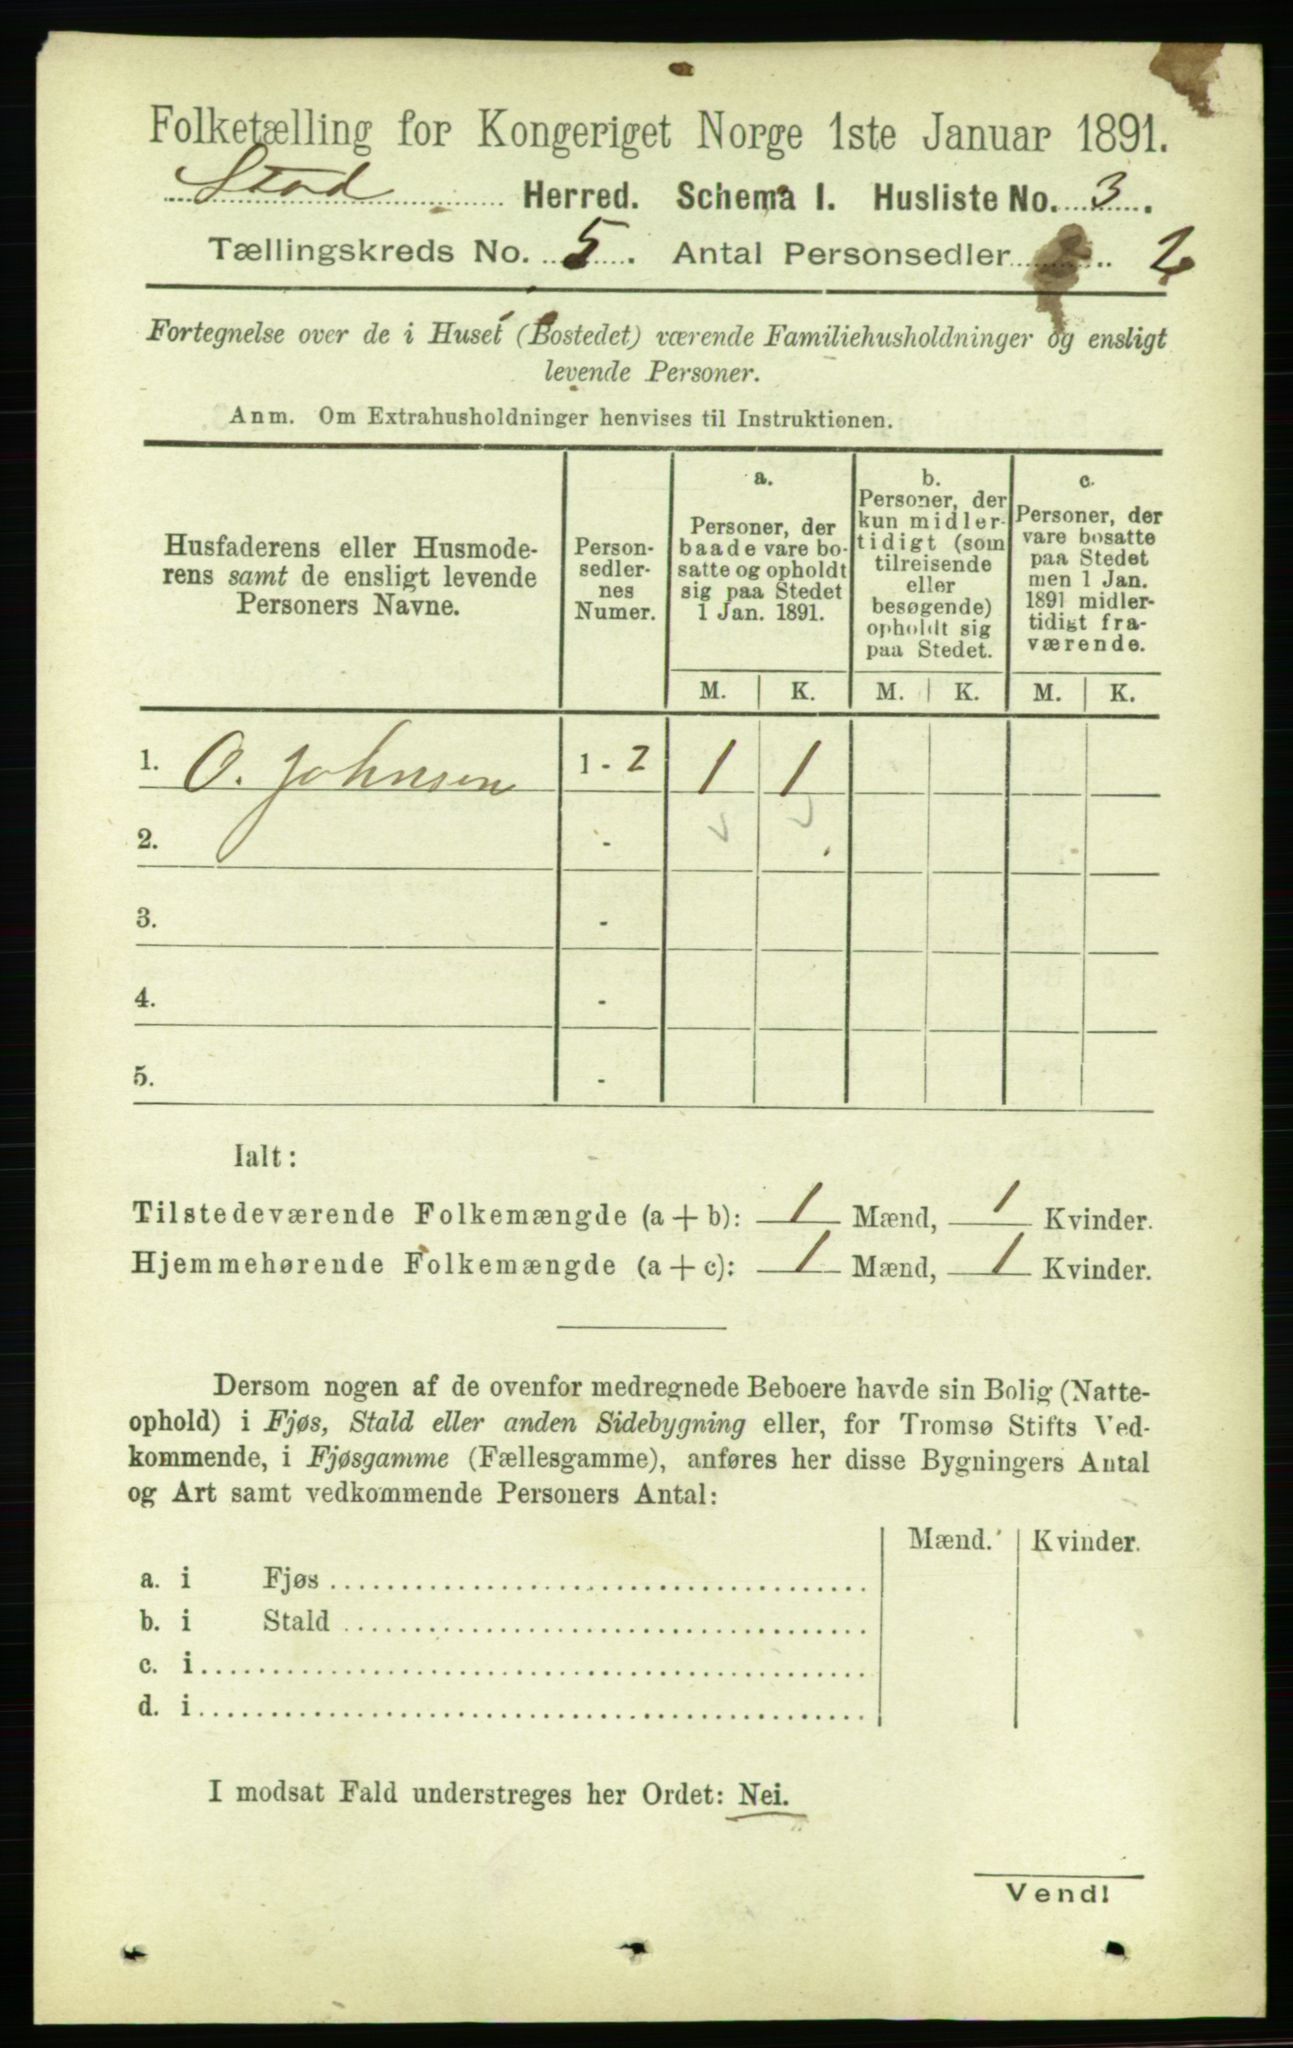 Folketælling for Kongeriget Norge 1ste Januar 1891.
Stod Herred. Schema I. Husliste No. 3.
Tællingskreds No. 5. Antal Personsedler 2
Fortegnelse over de i Huset (Bostedet) værende Familiehusholdninger og ensligt
levende Personer.
Anm. Om Extrahusholdninger henvises til Instruktionen.
Husfaderens eller Husmode-
rens samt de ensligt levende
Personers Navne.
Person-
sedler-
nes
Numer.
a.
Personer, der
baade vare bo-
satte og opholdt
sig paa Stedet
1 Jan. 1891.
b.
Personer, der
kun midler-
tidigt (som
tilreisende
eller
besøgende)
opholdt sig
paa Stedet.
c.
Personer, der
vare bosatte
paa Stedet
men 1 Jan.
1891 midler-
tidigt fra-
værende.
M. K. M. K. M. K.
1. O. Johnsen 1 - 2 1 1
2. -
3. -
4. -
5. -
Ialt:
Tilstedeværende Folkemængde (a + b): 1 Mænd, 1 Kvinder.
Hjemmehørende Folkemængde (a + c): 1 Mænd, 1 Kvinder.
Dersom nogen af de ovenfor medregnede Beboere havde sin Bolig (Natte-
ophold) i Fjøs, Stald eller anden Sidebygning eller, for Tromsø Stifts Ved-
kommende, i Fjøsgamme (Fællesgamme), anføres her disse Bygningers Antal
og Art samt vedkommende Personers Antal:
Mænd. Kvinder.
a. i Fjøs
b. i Stald
c. i
d. i
I modsat Fald understreges her Ordet: Nei.
Vend!